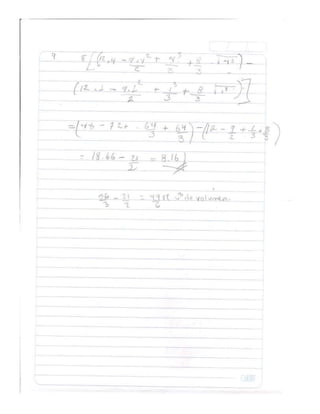 4 8[(12.4 - 9.4²/2 + 4³/3 + 8/3 √4³) -
(12.1 - 9.1²/2 + 1³/3 + 8/3 √1³)]
=(48 - 72 + 64/3 + 64/3) - (12 - 9/2 + 1/3 + 8/3)
= 18.66 - 21/2 = 8.16
56/3 - 21/2 = 49/6 de volumen